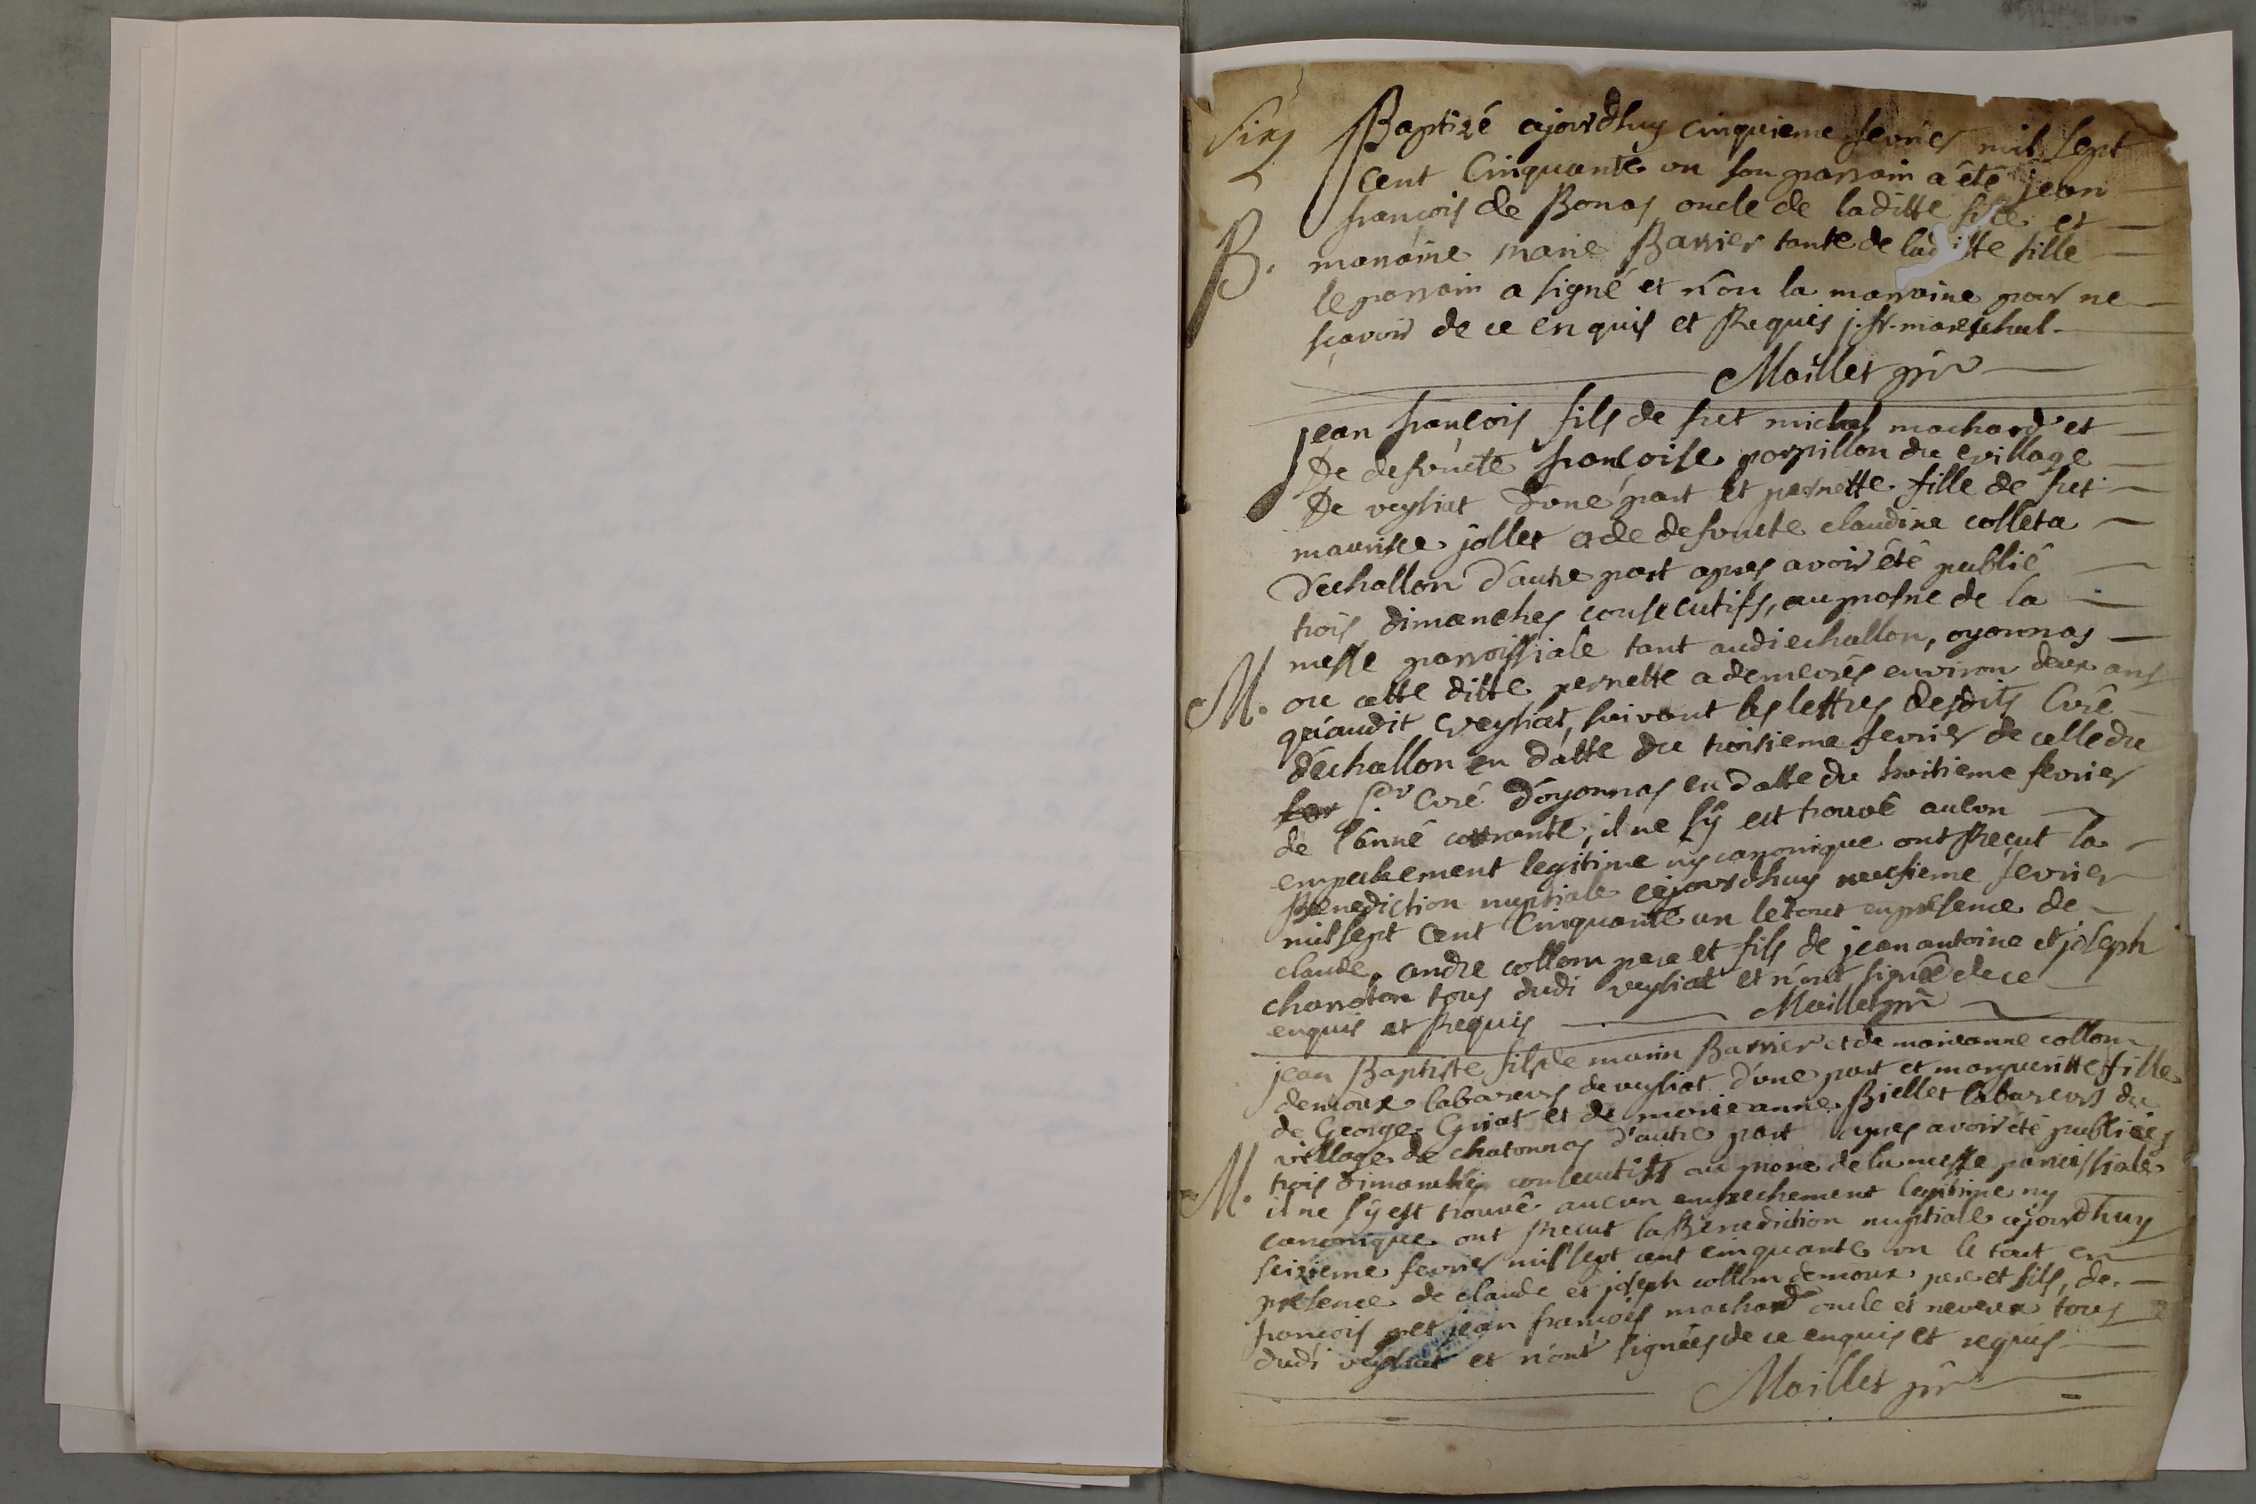 Six
Baptizé ajourdhuy cinquieme fevrier mil sept
cent Cinquante un son parrain a été jean
françois de Bonas oncle de laditte fille et
B. marraine marie Barrier tante de laditte fille
le parrain a signé et n'on la marraine pour ne
sçavoir de ce enquis et Requis j. fr. mareschal.
Maillet
jean françois fils de fut michel machard et
De defuncte françoise parpillon du village
De veyliat d'une part et pernette fille de fut
maurise jollet et de defuncte claudine colleta
d'echallon d'autre part apres avoir été publié
trois dimanches consecutifs, au prosne de la
messe parroissiale tant audi echallon, oyonnas
M. ou cette ditte pernette a demeurés environ deux ans
qu'audit veyliat, suivant les lettres desdits Curé
d'echallon en datte du troisieme fevrier de celle du
Sr Curé d'oyonnas en datte du huitieme fevrier
de l'anné courrante, il ne s'y est trouvé aucon
empechement legitime ny canonique ont Reçut la
Benediction nuptiale ajourdhuy neufieme fevrier
mil sept cent Cinquante un le tout en presence de
claude, andre collom pere et fils de jean antoine et joseph
charoton tous dudi veyliat et n'ont signée de ce
enquis et Requis
Maillet
jean Baptiste fils de marin Barrier et de marieanne collom
demoux labareurs de veyliat d'une part et margueritte fille
de George Griat et de marieanne Biellet labareurs du
village de chatonnas d'autre part apres avoir été publiées
trois dimanches consecutifs au prone de la messe paroissiale
M. il ne s'y est trouvé aucun empechement legitime ny
canonique ont Recut la Benediction nuptiale ajourdhuy
seizieme fevrier mil sept cent cinquante un le tout en
presence de claude et joseph collom demoux pere et fils, de
francois et jean francois machard oncle et neveux tous
dudi veyliat et n'ont signées de ce enquis et requis
Maillet